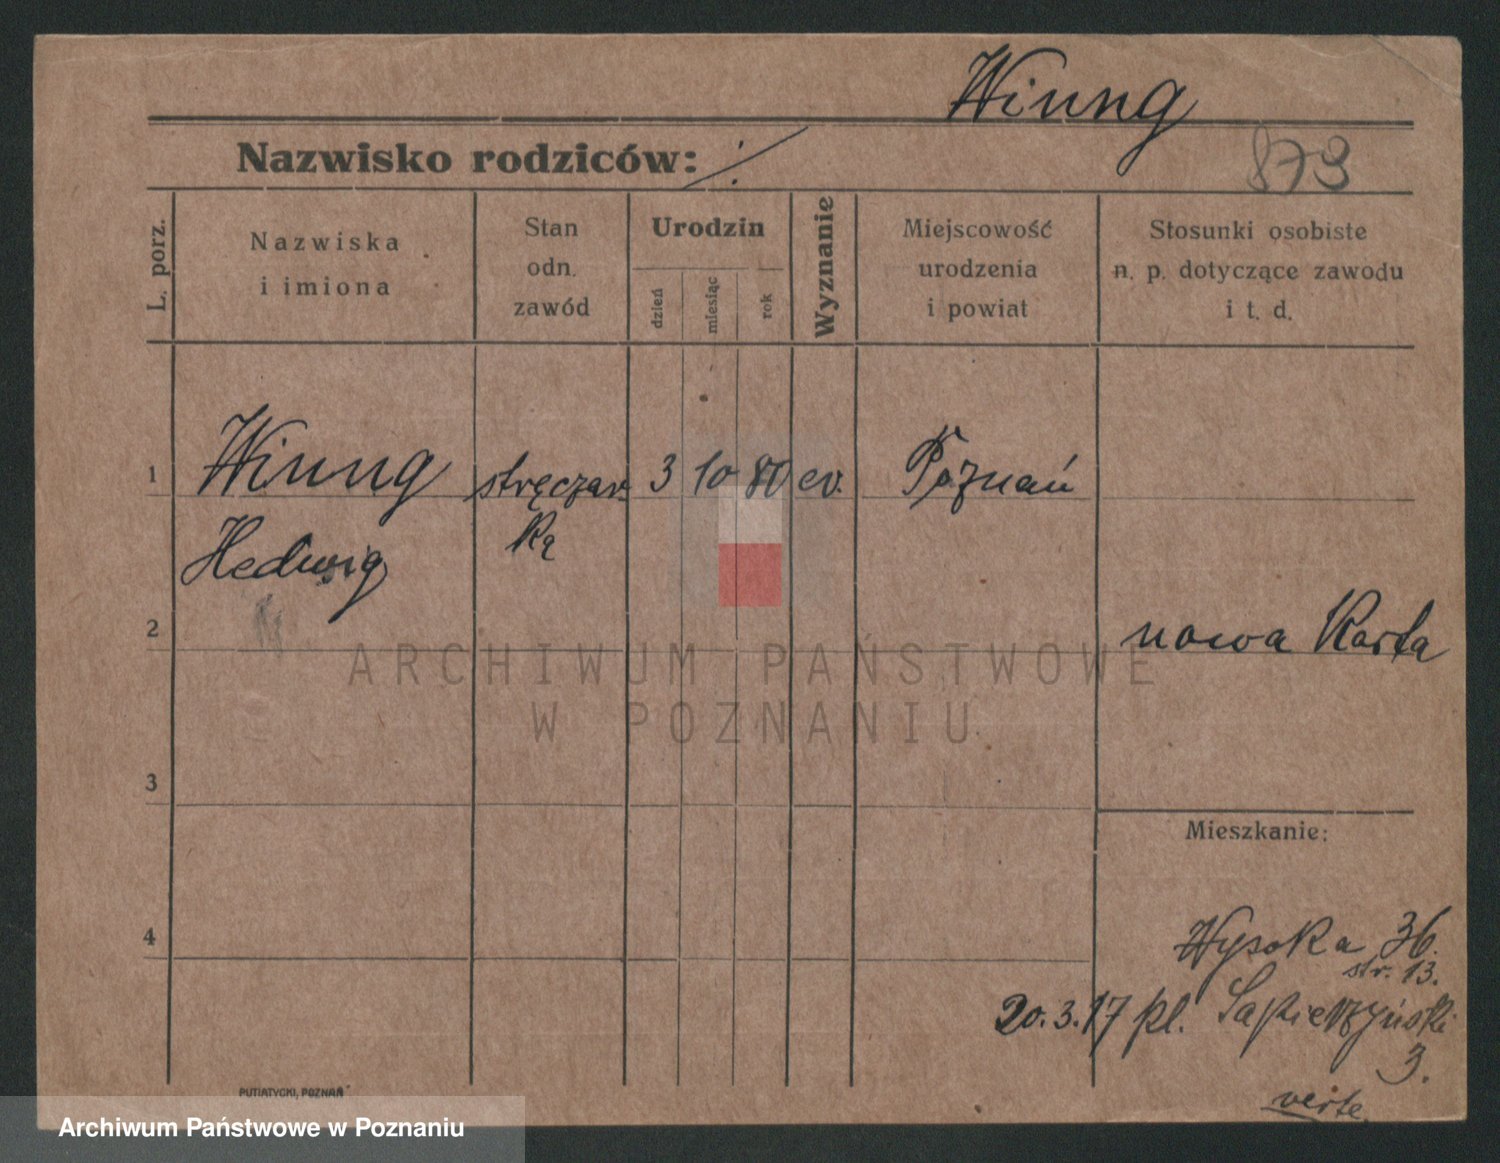 Winng
873
Nazwisko rodziców: ./.
L. porz.
Nazwiska
i imiona
Stan
odn.
zawód
Urodzin
dzień
miesiąc
rok
Wyznanie
Miejscowość
urodzenia
i powiat
Stosunki osobiste
n. p. dotyczące zawodu
i t. d.
1
Winng
stręczar-
3
10
80
ev.
Poznań
Hedwig
ką
2
nowa Karta
ARCHIWUM PAŃSTWOWE
W POZNANIU
3
Mieszkanie:
4
Wysoka 36.
str. 13.
20.3.17 pl. Sapieżyński
3.
verte.
PUTIATYCKI, POZNAŃ
Archiwum Państwowe w Poznaniu